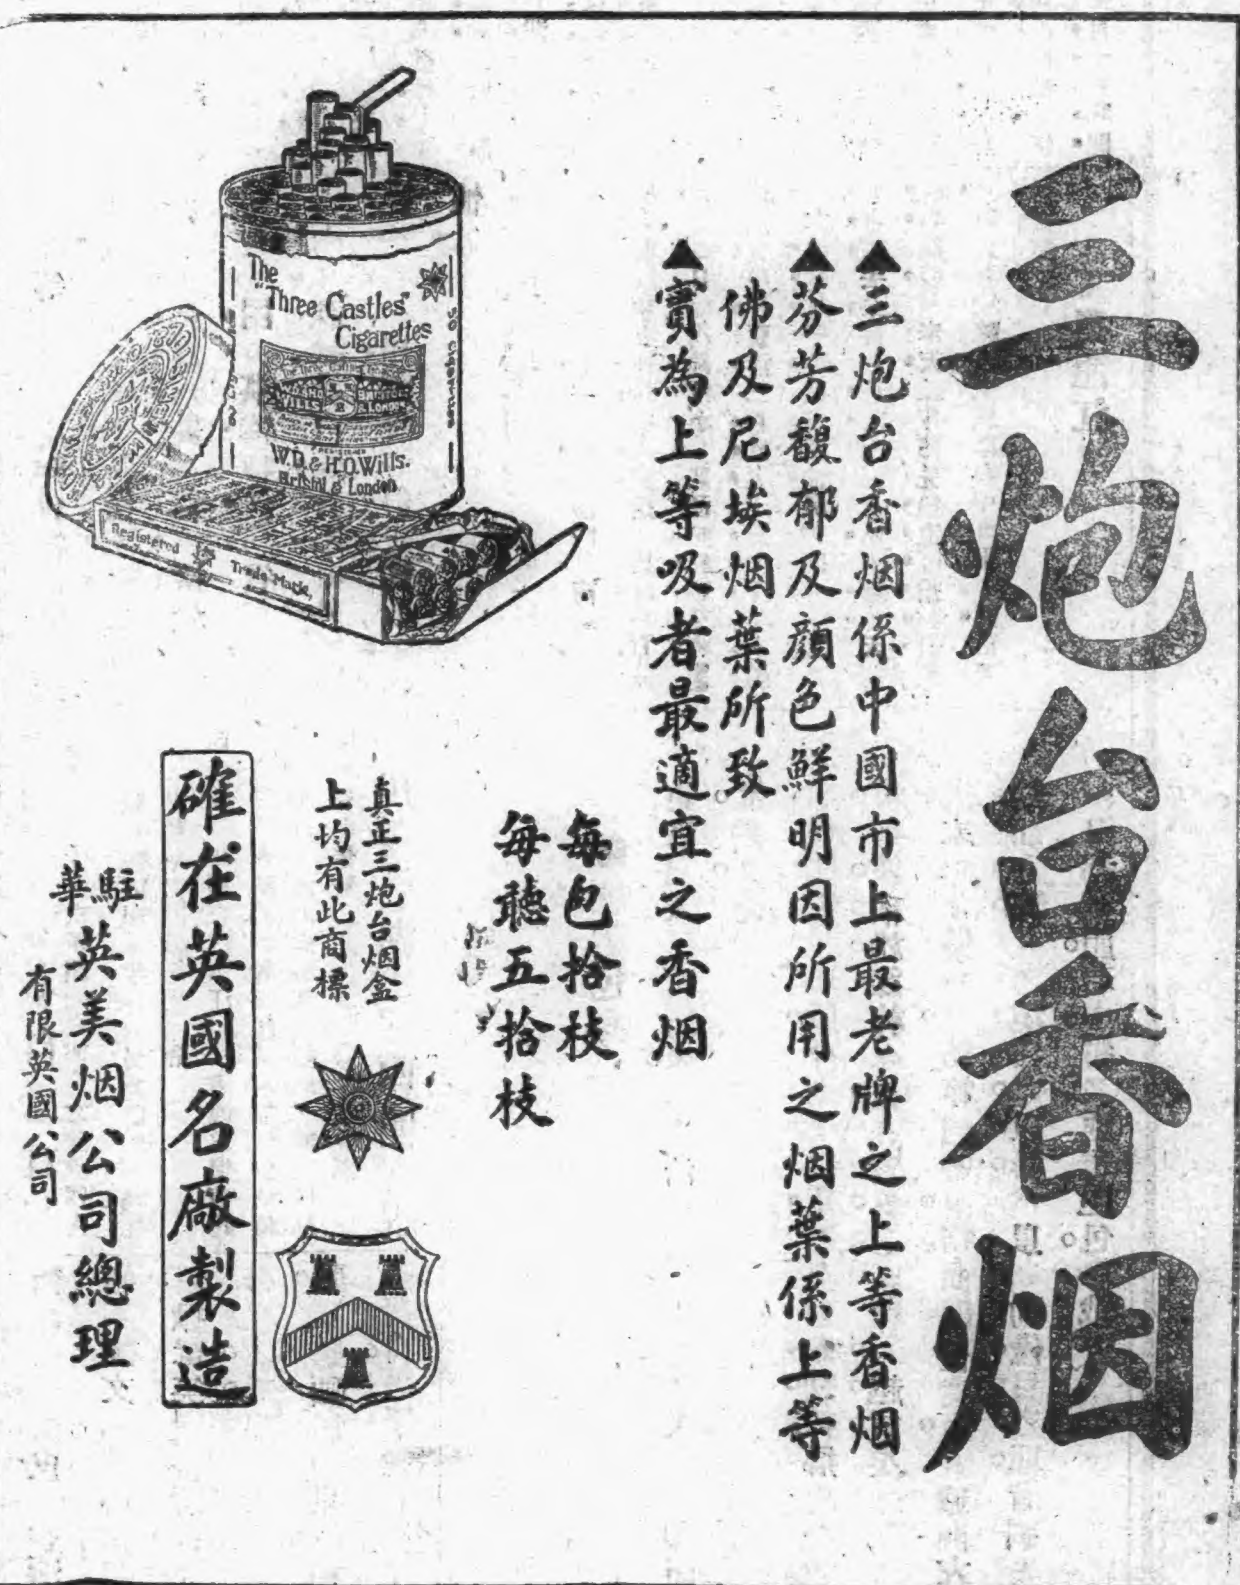 三炮台香烟
▲三炮台香烟係中國市上最老牌之上等香烟
▲芬芳馥郁及顔色鮮明因所用之烟葉係上等
佛及尼埃烟葉所致
▲實為上等吸者最適宜之香烟
每包拾枝
每聽五拾枝
真正三炮台烟盒
上均有此商標
確在英國名廠製造
駐華英美烟公司總理
有限英國公司
The
"Three Castles"
Cigarettes
BRISTOL
WILLS
& LONDON
W.D. & H.O. Wills.
Bristol & London
50 Cigarettes
Registered
Trade Mark,